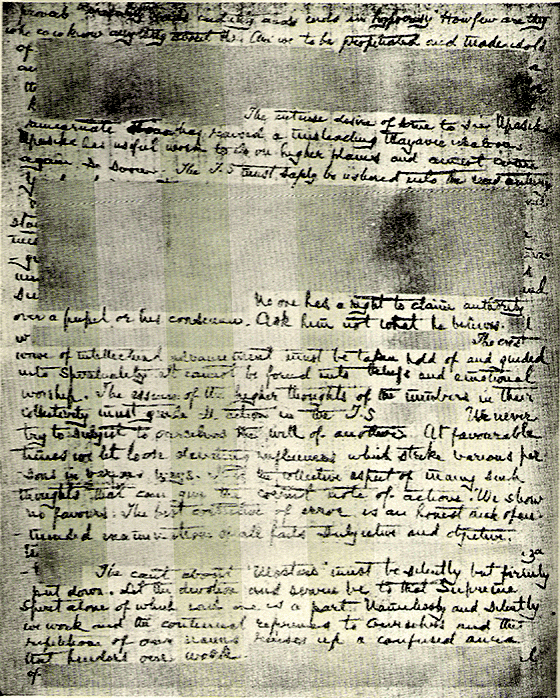 proverb "credulity breeds credulity and ends in hypocrisy" How few are they
who can know anything about us. Are we to be propitiated and made idols
of
The intense desire of some to see Upasika
reincarnate at once has raised a misleading Mayavic ideation.
Upasika has useful work to do on higher planes and cannot come
again so soon. The T.S must safely be ushered into the new century
No one has a right to claim authority
over a pupil or his conscience. Ask him not what he believes.
The crest
wave of intellectual advancement must be taken hold of and guided
into Spirituality. It cannot be forced into beliefs and emotional
worship. The essence of the higher thoughts of the members in their
collectivity must guide all action in the T.S We never
try to subject to ourselves the will of another. At favourable
times we let loose elevating influences which strike various per
sons in various ways. It is the collective aspect of many such
thoughts that can give the correct note of action. We show
no favours. The best corrective of error is an honest and open-
minded examination of all facts subjective and objective.
The cant about "Masters" must be silently but firmly
put down. Let the devotion and service be to that Supreme
Spirit alone of which each one is a part. Namelessly and silently
we work and the continual references to ourselves and the
repetition of our names raises up a confused aura
that hinders our work.
of